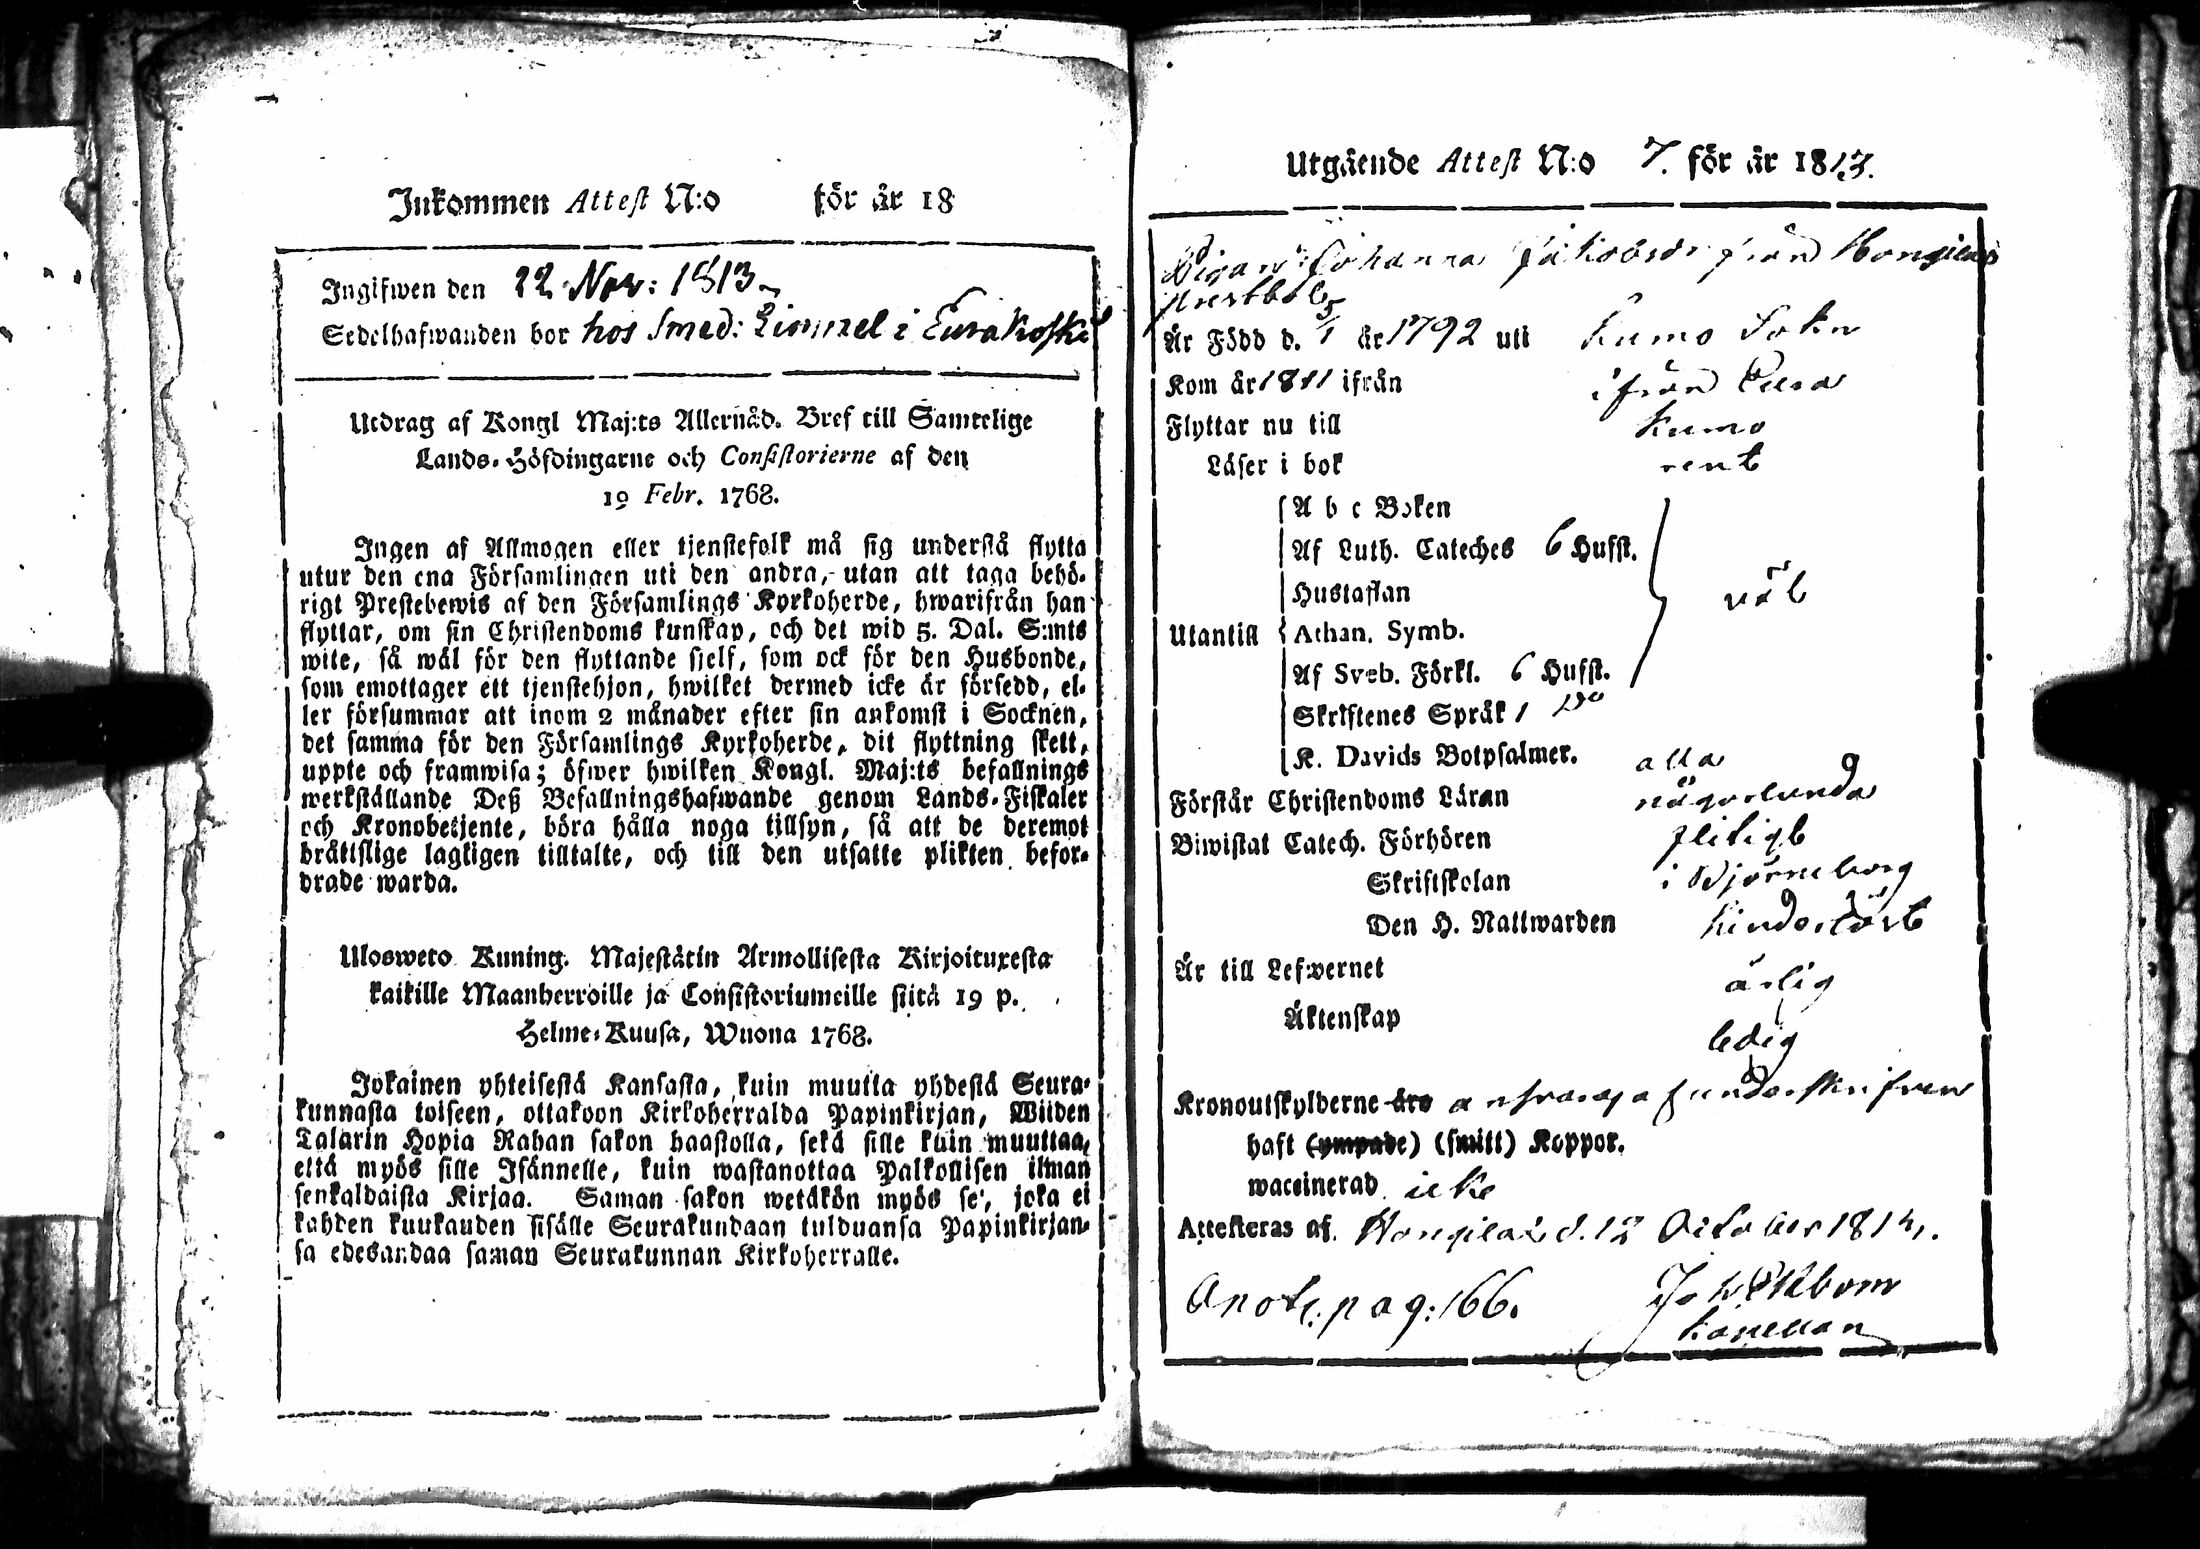 Inkommen Attest N:o för år 18
Ingifwen den 22 Nov: 1813
Sedelhafwanden bor hos Smed: Limnel i Eurakoski
Utdrag af Kongl Maj:ts Allernåd. Bref till Samtelige
Lands-Höfdingarne och Consistorierne af den
19 Febr. 1768.
Ingen af Allmogen eller tjenstefolk må sig understå flytta
utur den ena Församlingen uti den andra, utan att taga behö-
rigt Prestebewis af den Församlings Kyrkoherde, hwarifrån han
flyttar, om sin Christendoms kunskap, och det wid 5. Dal. S:mts
wite, så wäl för den flyttande sjelf, som ock för den Husbonde,
som emottager ett tjenstehjon, hwilket dermed icke är försedd, el-
ler försummar att inom 2 månader efter sin ankomst i Socknen,
det samma för den Församlings Kyrkoherde, dit flyttning skett,
uppte och framwisa; öfwer hwilken Kongl. Maj:ts befallnings
werkställande Deß Befallningshafwande genom Lands-Fiskaler
och Kronobetjente, böra hålla noga tillsyn, så att de deremot
bråttslige lagligen tilltalte, och till den utsatte plikten befor-
drade warda.
Ulosweto Kuning. Majestätin Armollisesta Kirjoituxesta
kaikille Maanherroille ja Consistoriumeille siitä 19 p.
Helme-Kuusa, Wuona 1768.
Jokainen yhteisestä Kansasta, kuin muutta yhdestä Seura-
kunnasta toiseen, ottakoon Kirkoherralda Papinkirjan, Wiiden
Talarin Hopia Rahan sakon haastolla, sekä sille kuin muuttaa,
että myös sille Isännelle, kuin wastanottaa Palkollisen ilman
senkaldaista Kirjaa. Saman sakon wetäkön myös se, joka ei
kahden kuukauden sisälle Seurakundaan tulduansa Papinkirjan-
sa edesandaa saman Seurakunnan Kirkoherralle.
Utgående Attest N:o 7. för år 1813.
Pigan Johanna Jakobsdr från Hongilax
Prestbol
Är Född d. 5/1 år 1792 uti Kumo Sokn
Kom år 1811 ifrån ifrån Eura
Flyttar nu till Kumo
Läser i bok rent
A b c Boken
Af Luth. Cateches 6 Hufst.
Hustaflan väl
Utantill Athan. Symb.
Af Sveb. Förkl. 6 Hufst.
Skriftenes Språk
K. Davids Botpsalmer. alla
Förstår Christendoms Läran någorlunda
Biwistat Catech. Förhören flitigt
Skriftskolan i Björneborg
Den H. Nattwarden
Är till Lefwernet ärlig
Äktenskap ledig
Kronoutskylderne äro ansvarar underskrifven
haft (ympade) (smitt) Koppor.
waccinerad icke
Attesteras af. d. 12 October 181
Anot. pag: 166. Joh Ekbom
Kapellan